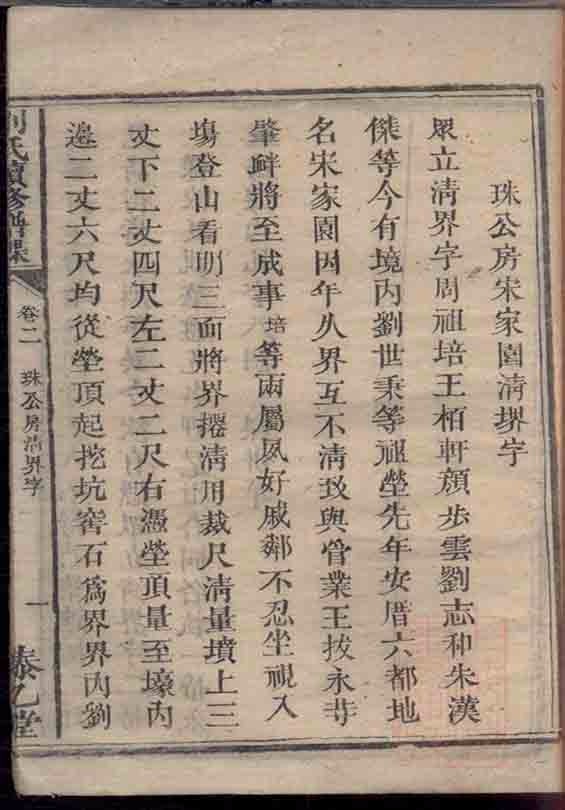 珠公房宋家園清堺字
眾立清界字周祖培王栢軒顏步雲劉志和朱漢
傑等今有境內劉世秉等祖塋先年安厝六都地
名宋家園因年久界互不清致與管業王拔永等
肇衅將至成事培等兩屬夙好戚鄰不忍坐視入
塲登山看明三面將界摆清用裁尺清量墳上三
丈下二丈四尺左二丈二尺右憑塋頂量至壕內
邉二丈六尺均從塋頂起挖坑窖石爲界界內劉
劉氏續修譜牒
卷二
珠公房清界字
一
泰乙堂